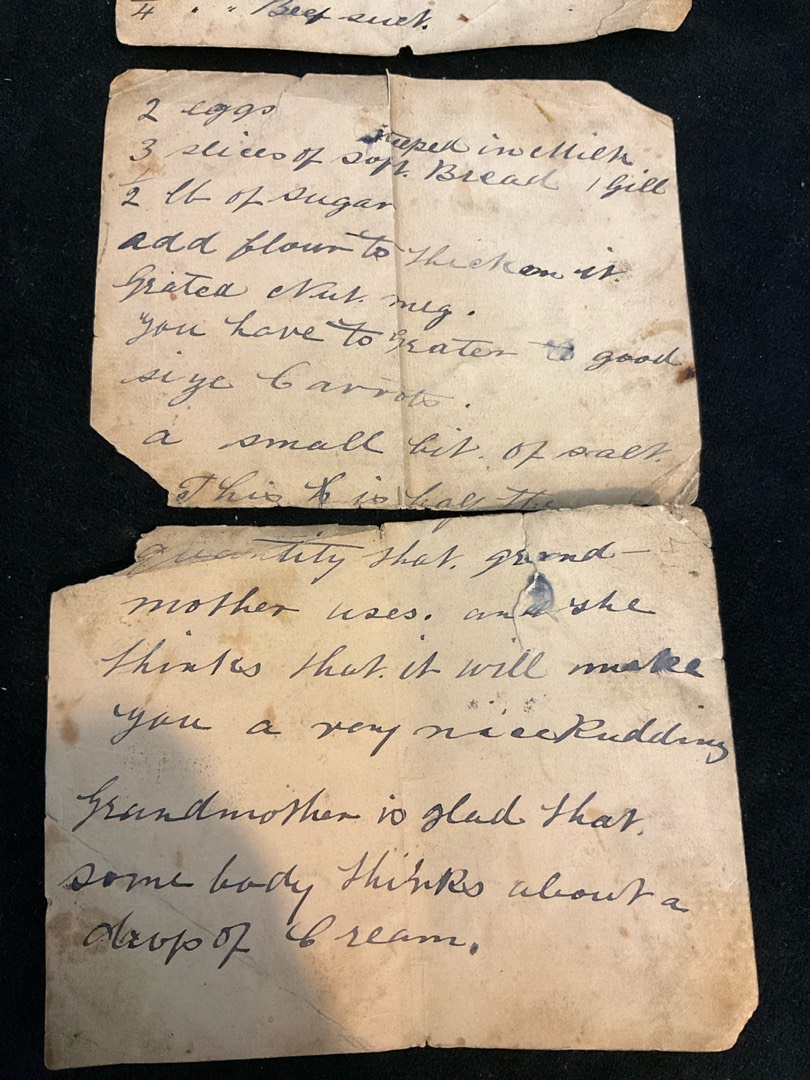 1/4 " " Beef suet.
2 eggs
steeped in Milk
3 slices of soft. Bread 1 Gill
1/2 lb of sugar
add flour to thicken it.
Grated Nut. meg.
You have to Grater to good
size Carrots.
a small bit. of salt.
This is half the
quantity that. grand-
mother uses. and she
thinks that. it will make
you a very nice Pudding
Grandmother is glad that.
some body thinks about a
drop of Cream.